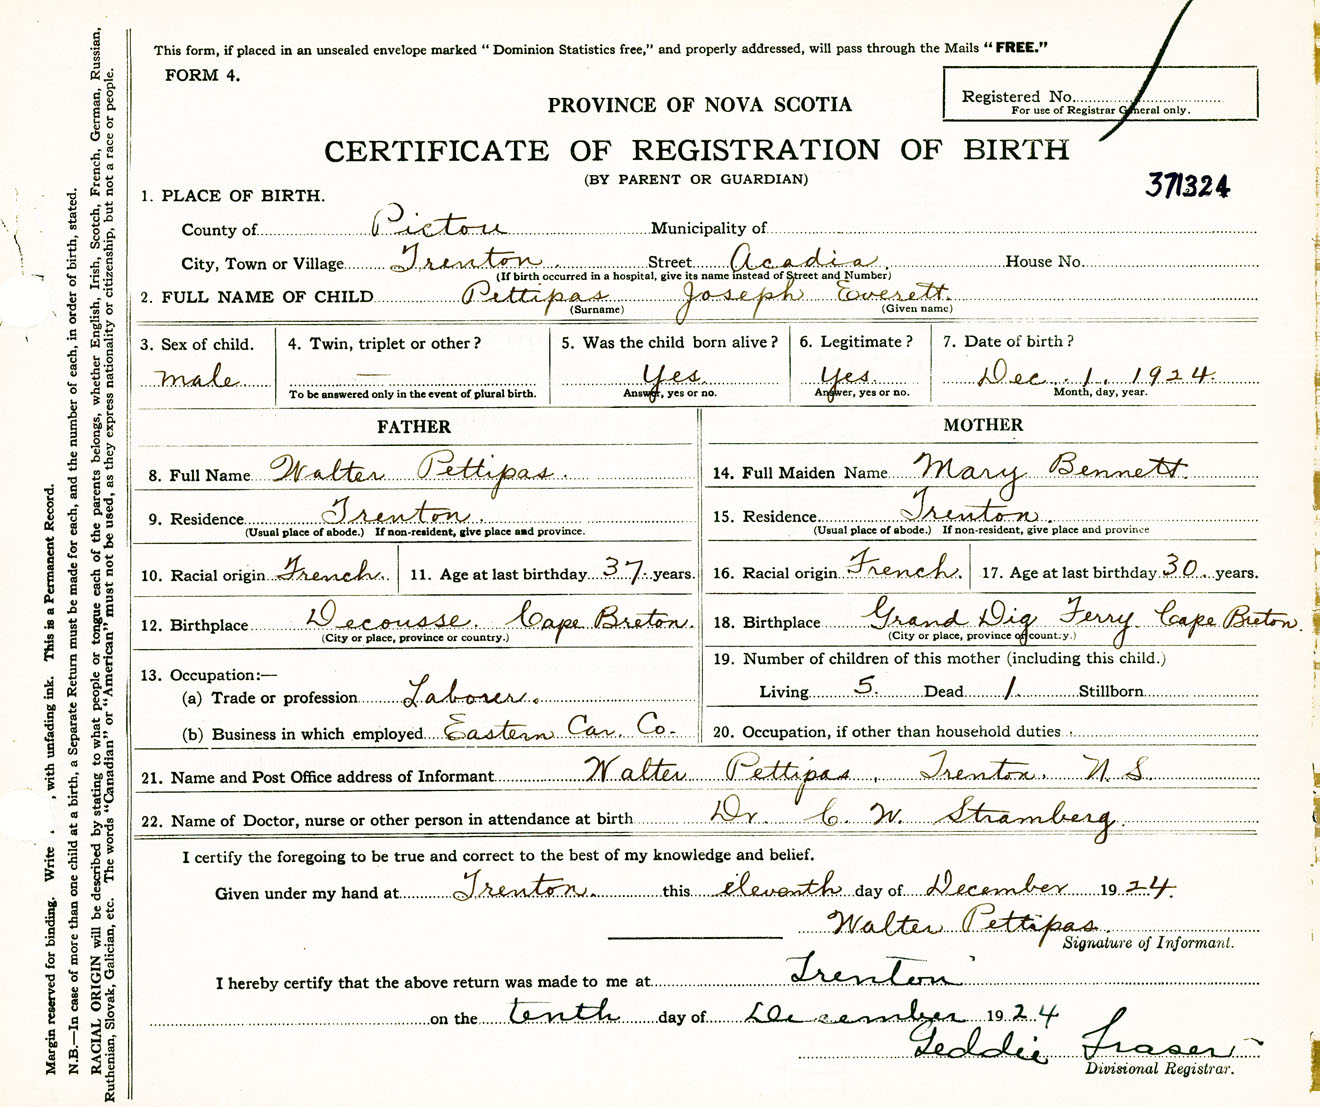 This form, if placed in an unsealed envelope marked "Dominion Statistics free," and properly addressed, will pass through the Mails "FREE."
FORM 4.
Registered No.
For use of Registrar General only.
PROVINCE OF NOVA SCOTIA
CERTIFICATE OF REGISTRATION OF BIRTH
(BY PARENT OR GUARDIAN)
371324
1. PLACE OF BIRTH.
County of Pictou Municipality of
City, Town or Village Trenton. Street Acadia. House No.
(If birth occurred in a hospital, give its name instead of Street and Number)
2. FULL NAME OF CHILD Pettipas Joseph Everett.
(Surname) (Given name)
3. Sex of child. 4. Twin, triplet or other? 5. Was the child born alive? 6. Legitimate? 7. Date of birth?
male — Yes. Yes. Dec. 1, 1924.
To be answered only in the event of plural birth. Answer, yes or no. Answer, yes or no. Month, day, year.
FATHER MOTHER
8. Full Name Walter Pettipas. 14. Full Maiden Name Mary Bennett.
9. Residence Trenton. 15. Residence Trenton.
(Usual place of abode.) If non-resident, give place and province. (Usual place of abode.) If non-resident, give place and province
10. Racial origin French. 11. Age at last birthday 37 years. 16. Racial origin French. 17. Age at last birthday 30 years.
12. Birthplace Decousse. Cape Breton. 18. Birthplace Grand Dig Ferry. Cape Breton.
(City or place, province or country.) (City or place, province or country.)
13. Occupation:— 19. Number of children of this mother (including this child.)
(a) Trade or profession Laborer. Living 5. Dead 1 Stillborn
(b) Business in which employed Eastern Car. Co. 20. Occupation, if other than household duties
21. Name and Post Office address of Informant Walter Pettipas, Trenton, N.S.
22. Name of Doctor, nurse or other person in attendance at birth Dr. C. W. Stramberg.
I certify the foregoing to be true and correct to the best of my knowledge and belief.
Given under my hand at Trenton. this eleventh day of December 1924.
Walter Pettipas.
Signature of Informant.
I hereby certify that the above return was made to me at Trenton
on the tenth day of December 1924
Geddie Fraser
Divisional Registrar.
Margin reserved for binding. Write , with unfading ink. This is a Permanent Record.
N.B.—In case of more than one child at a birth, a Separate Return must be made for each, and the number of each, in order of birth, stated.
RACIAL ORIGIN will be described by stating to what people or tongue each of the parents belongs, whether English, Irish, Scotch, French, German, Russian,
Ruthenian, Slovak, Galician, etc. The words "Canadian" or "American" must not be used, as they express nationality or citizenship, but not a race or people.